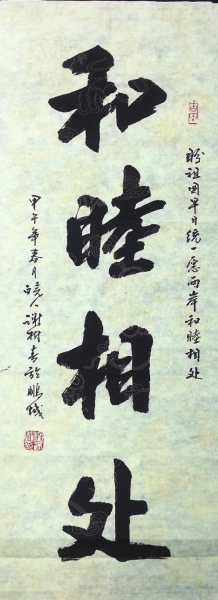 盼祖国早日统一愿两岸和睦相处
和睦相处
甲午年春月
谢树春於鹏城